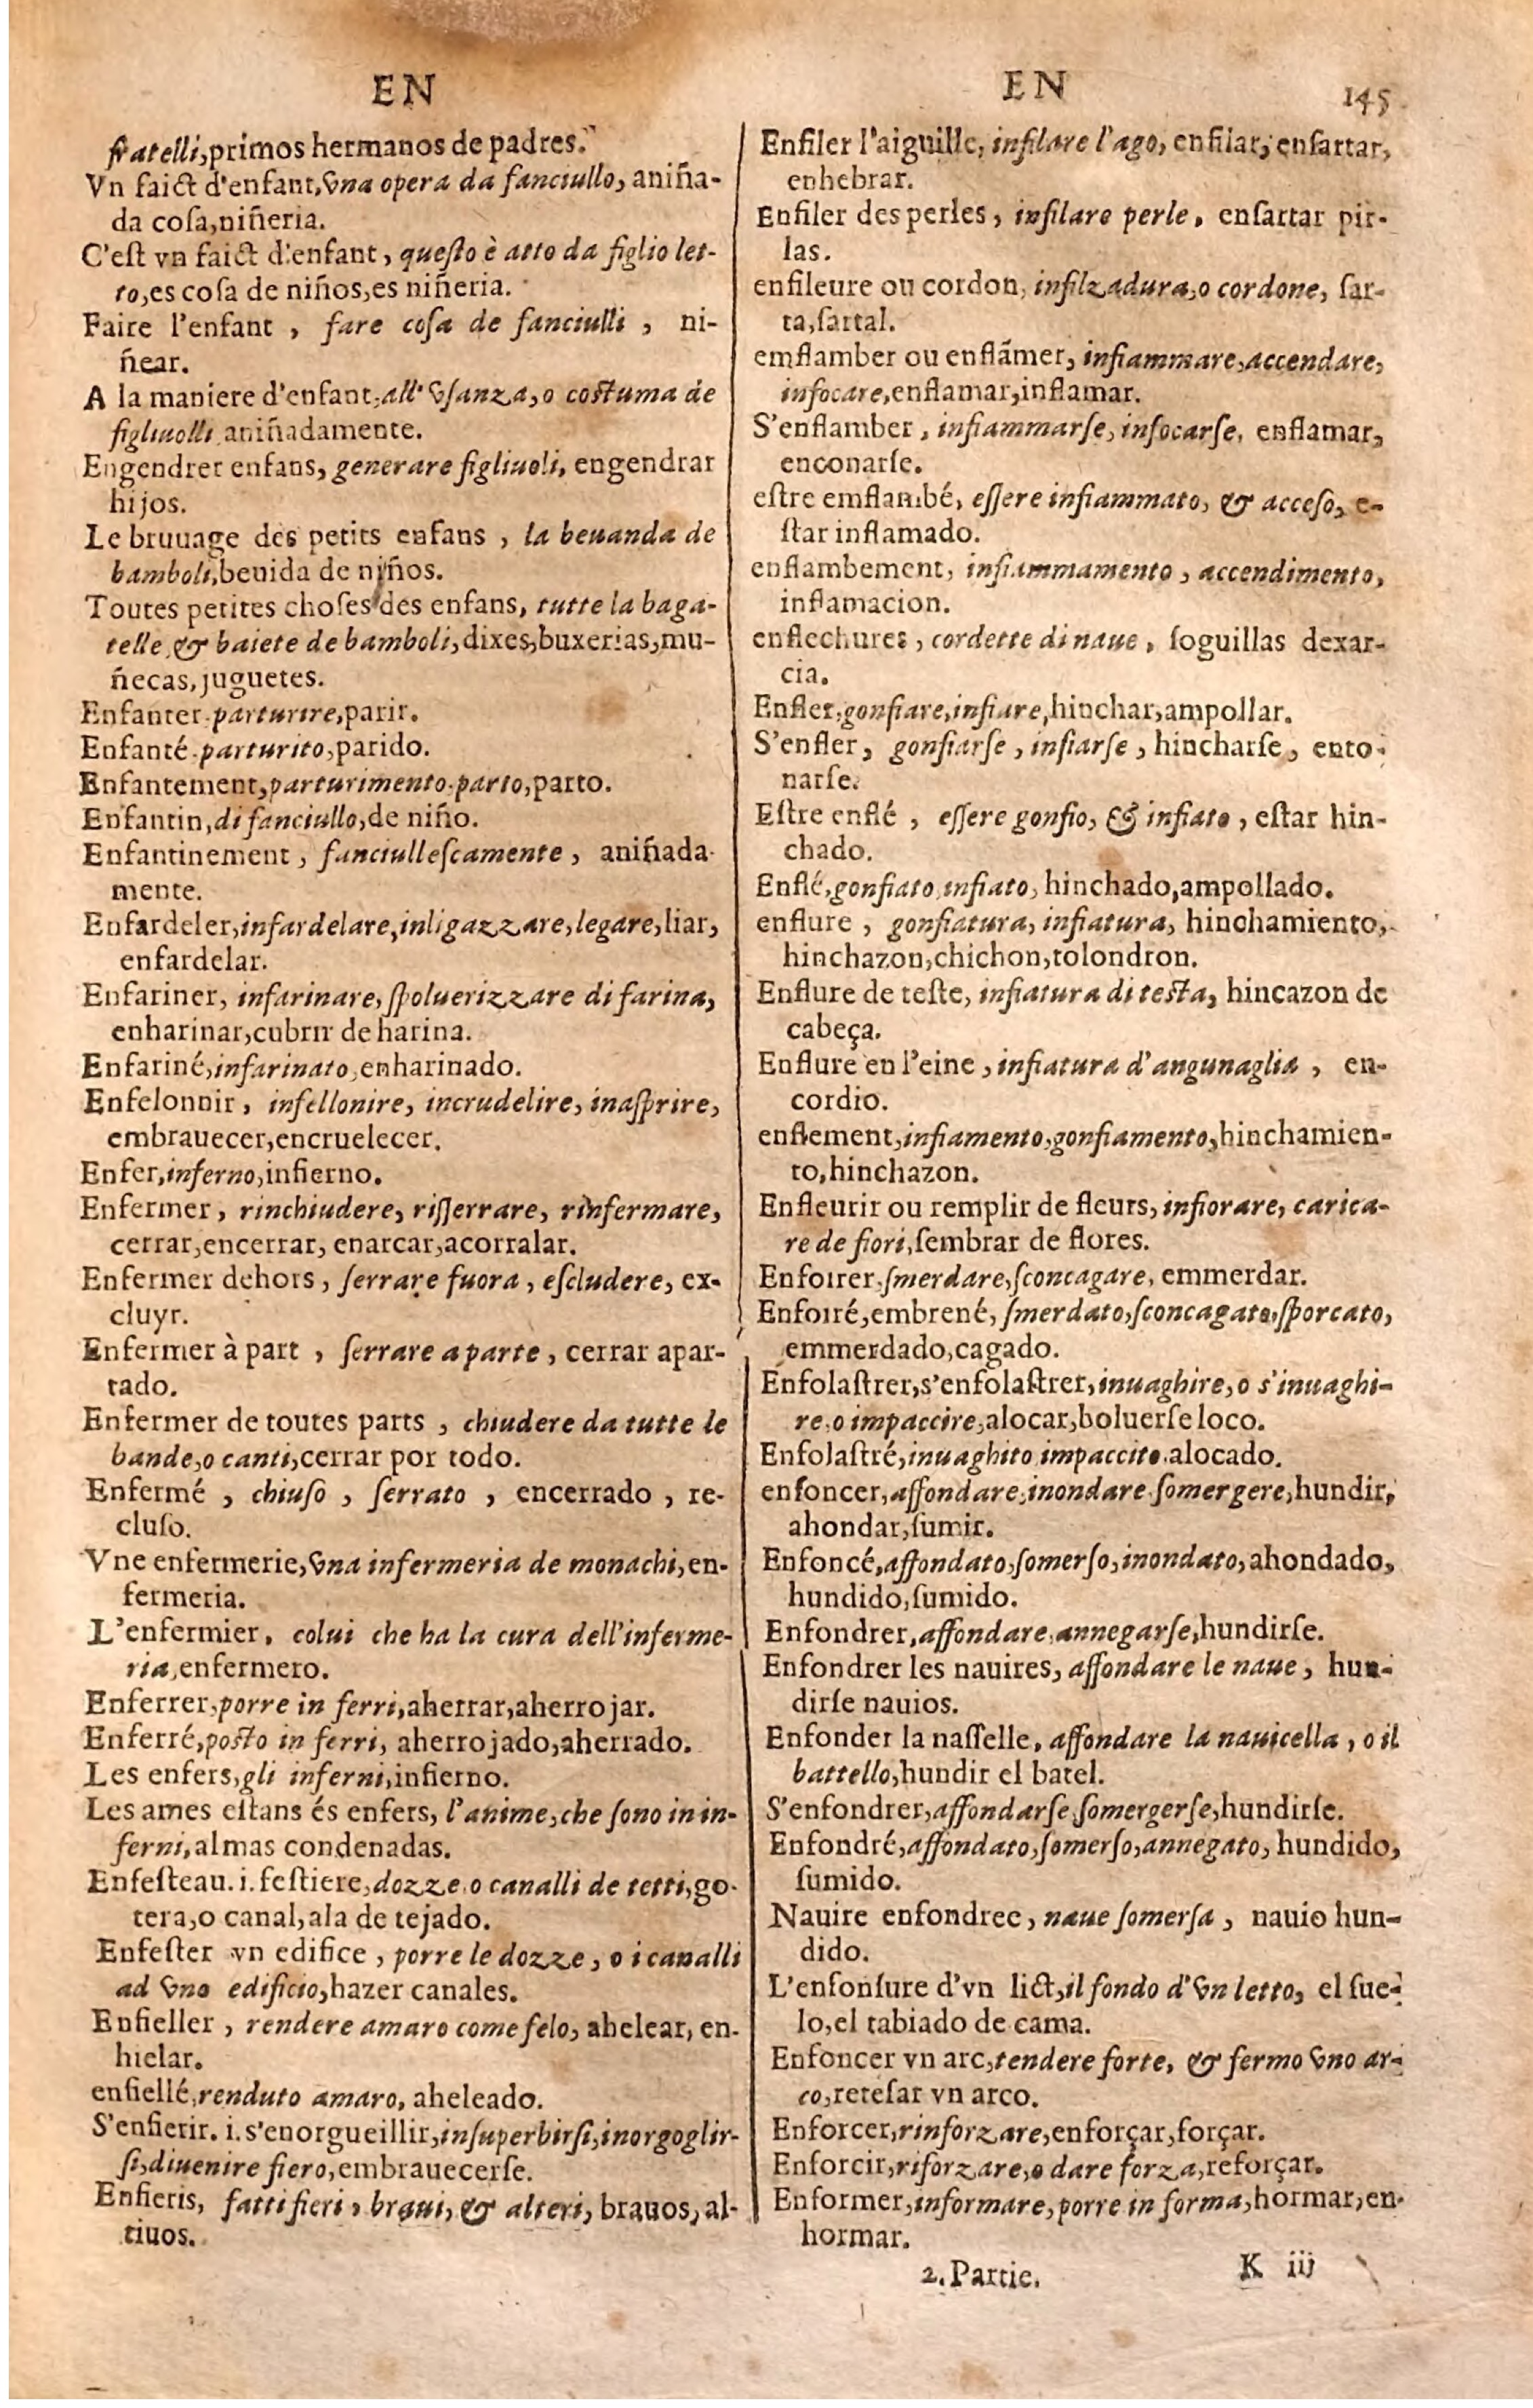 EN
fratelli,primos hermanos de padres.
Vn faict d'enfant,vna opera da fanciullo, aniña-
da cosa,niñeria.
C'est vn faict d'enfant, questo è atto da figlio let-
to,es cosa de niños,es niñeria.
Faire l'enfant , fare cosa de fanciulli , ni-
ñear.
A la maniere d'enfant,all' vsanza,o costuma de
figliuolli aniñadamente.
Engendrer enfans, generare figliuoli, engendrar
hijos.
Le bruuage des petits enfans , la beuanda de
bamboli,beuida de niños.
Toutes petites choses des enfans, tutte la baga-
telle & baiete de bamboli,dixes,buxerias,mu-
ñecas,juguetes.
Enfanter.parturire,parir.
Enfanté.parturito,parido.
Enfantement,parturimento.parto,parto.
Enfantin,di fanciullo,de niño.
Enfantinement , fanciullescamente , aniñada-
mente.
Enfardeler,infardelare,inligazzare,legare,liar,
enfardelar.
Enfariner, infarinare, spoluerizzare di farina,
enharinar,cubrir de harina.
Enfariné,infarinato,enharinado.
Enfelonnir , infellonire, incrudelire, inasprire,
embrauecer,encruelecer.
Enfer,inferno,infierno.
Enfermer , rinchiudere, risserrare, rinfermare,
cerrar,encerrar, enarcar,acorralar.
Enfermer dehors , serrare fuora , escludere, ex-
cluyr.
Enfermer à part , serrare a parte , cerrar apar-
tado.
Enfermer de toutes parts , chiudere da tutte le
bande,o canti,cerrar por todo.
Enfermé , chiuso , serrato , encerrado , re-
cluso.
Vne enfermerie,vna infermeria de monachi,en-
fermeria.
L'enfermier, colui che ha la cura dell'inferme-
ria,enfermero.
Enferrer,porre in ferri,aherrar,aherrojar.
Enferré,posto in ferri, aherrojado,aherrado.
Les enfers,gli inferni,infierno.
Les ames estans és enfers, l'anime,che sono in in-
ferni,almas condenadas.
Enfesteau.i.festiere,dozze o canalli de tetti,go-
tera,o canal,ala de tejado.
Enfester vn edifice , porre le dozze , o i canalli
ad vno edificio,hazer canales.
Enfieller , rendere amaro come felo, ahelear, en-
hielar.
enfiellé,renduto amaro, aheleado.
S'enfierir. i. s'enorgueillir,insuperbirsi,inorgoglir-
si,diuenire fiero,embrauecerse.
Enfieris, fatti fieri , braui, & alteri, brauos, al-
tiuos.
EN 145
Enfiler l'aiguille, infilare l'ago, enfilar, ensartar,
enhebrar.
Enfiler des perles , infilare perle , ensartar pir-
las.
enfileure ou cordon, infilzadura,o cordone, sar-
ta,sartal.
emflamber ou enflãmer, infiammare,accendare,
infocare,enflamar,inflamar.
S'enflamber , infiammarse, infocarse, enflamar,
enconarse.
estre emflambé, essere infiammato, & acceso, e-
star inflamado.
enflambement, infiammamento , accendimento,
inflamacion.
enflechures , cordette di naue , soguillas dexar-
cia.
Enfler,gonfiare,infiare,hinchar,ampollar.
S'enfler , gonfiarse , infiarse , hincharse , ento-
narse.
Estre enflé , essere gonfio, & infiato , estar hin-
chado.
Enflé,gonfiato infiato, hinchado,ampollado.
enflure , gonfiatura, infiatura, hinchamiento,
hinchazon,chichon,tolondron.
Enflure de teste, infiatura di testa, hincazon de
cabeça.
Enflure en l'eine , infiatura d'angunaglia , en-
cordio.
enflement,infiamento,gonfiamento,hinchamien-
to,hinchazon.
Enfleurir ou remplir de fleurs, infiorare, carica-
re de fiori,sembrar de flores.
Enfoirer,smerdare,sconcagare, emmerdar.
Enfoiré,embrené, smerdato,sconcagato,sporcato,
emmerdado,cagado.
Enfolastrer,s'enfolastrer,inuaghire,o s'inuaghi-
re,o impaccire,alocar,boluerse loco.
Enfolastré,inuaghito impaccito.alocado.
enfoncer,affondare,inondare somergere,hundir,
ahondar,sumir.
Enfoncé,affondato,somerso,inondato,ahondado,
hundido,sumido.
Enfondrer,affondare,annegarse,hundirse.
Enfondrer les nauires, affondare le naue , hun-
dirse nauios.
Enfonder la nasselle, affondare la nauicella , o il
battello,hundir el batel.
S'enfondrer,affondarse,somergerse,hundirse.
Enfondré,affondato,somerso,annegato, hundido,
sumido.
Nauire enfondree, naue somersa , nauio hun-
dido.
L'enfonsure d'vn lict,il fondo d'vn letto, el sue-
lo,el tabiado de cama.
Enfoncer vn arc,tendere forte, & fermo vno ar-
co,retesar vn arco.
Enforcer,rinforzare,enforçar,forçar.
Enforcir,riforzare,o dare forza,reforçar.
Enformer,informare, porre in forma,hormar,en-
hormar.
2.Partie. K iij